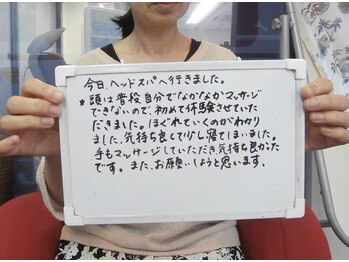 今日、ヘッドスパへ行きました。
頭は普段自分でなかなかマッサージ
できないので、初めて体験させていた
だきました。ほぐれていくのがわかり
ました。気持ち良くて少し寝てしまいました。
手もマッサージしていただき気持ち良かった
です。また、お願いしようと思います。